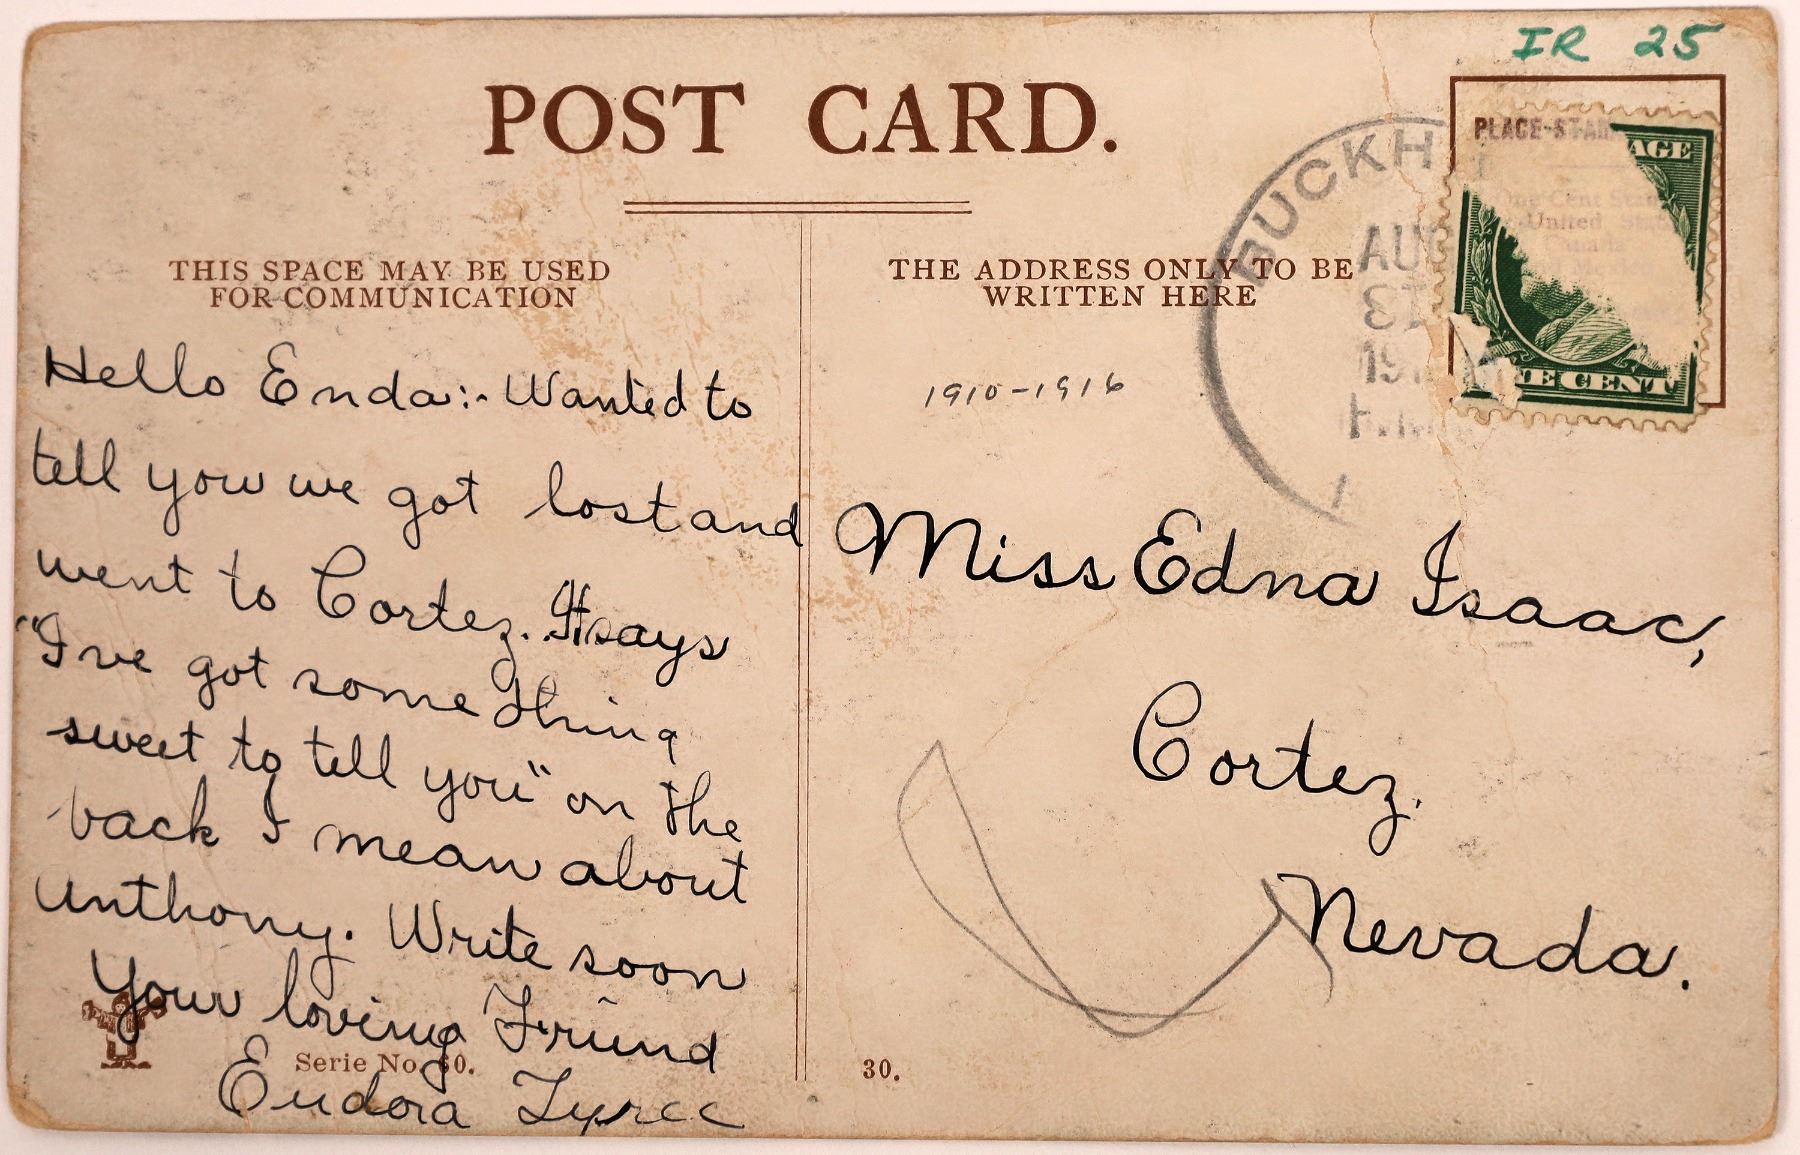 IR 25
POST CARD.
PLACE STAM
AGE
One Cent
United Stat
Canada
NE CENT
BUCKH
AUG
31
191
P.M.
THIS SPACE MAY BE USED
FOR COMMUNICATION
THE ADDRESS ONLY TO BE
WRITTEN HERE
1910-1916
Hello Enda:- Wanted to
tell you we got lost and
went to Cortez. It says
"I've got some thing
sweet to tell you" on the
back I mean about
Anthony. Write soon
Your loving Friend
Eudora Tyree
Serie No. 30.
30.
Miss Edna Isaac,
Cortez.
Nevada.